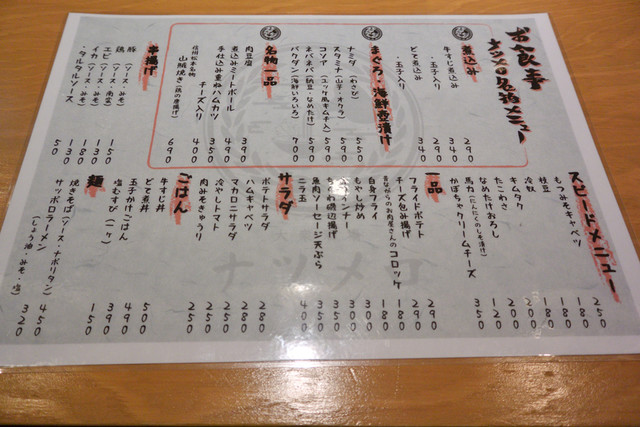 お食事
ナツメロ名物メニュー
煮込み
牛すじ煮込み 290
・玉子入り 340
どて煮込み 290
・玉子入り 340
まぐろ・海鮮壺漬け
ナミダ(わさび) 550
スタミナ(山芋・オクラ) 550
コソア(ユッケ風キムチ入) 590
ネバネバ(納豆・なめたけ) 590
バクダン(海鮮いろいろ) 700
名物一品
肉豆腐 390
煮込みミートボール 490
手仕込み重ねハムカツ 350
チーズ入り 400
信州松本名物
山賊焼き(鶏の唐揚げ) 690
串揚げ
豚(ソース・みそ) 100
鶏(ソース・みそ) 100
エビ(ソース・南蛮) 150
イカ(ソース・みそ) 130
・タルタルソース 50
スピードメニュー
もつみそキャベツ 250
枝豆 180
冷奴 180
キムタク 200
たこわさ 200
なめたけおろし 120
馬力(にんにくのしそ漬け)
かぼちゃクリームチーズ 350
一品
フライドポテト 290
チーズ包み揚げ 290
昔ながらのお肉屋さんのコロッケ 180
白身フライ 180
もやし炒め 300
ちくわ磯辺揚げ 300
魚肉ソーセージ天ぷら 350
ニラ玉 300
サラダ
ポテトサラダ 280
ハムキャベツ 280
マカロニサラダ 250
冷やしトマト 250
肉みそきゅうり 250
ごはん
牛すじ丼 500
どて煮丼 490
玉子かけごはん 390
塩むすび(一ヶ) 150
麺
焼きそば(ソース・ナポリタン) 450
サッポロラーメン
(しょう油・みそ・塩) 320
ナツメロ